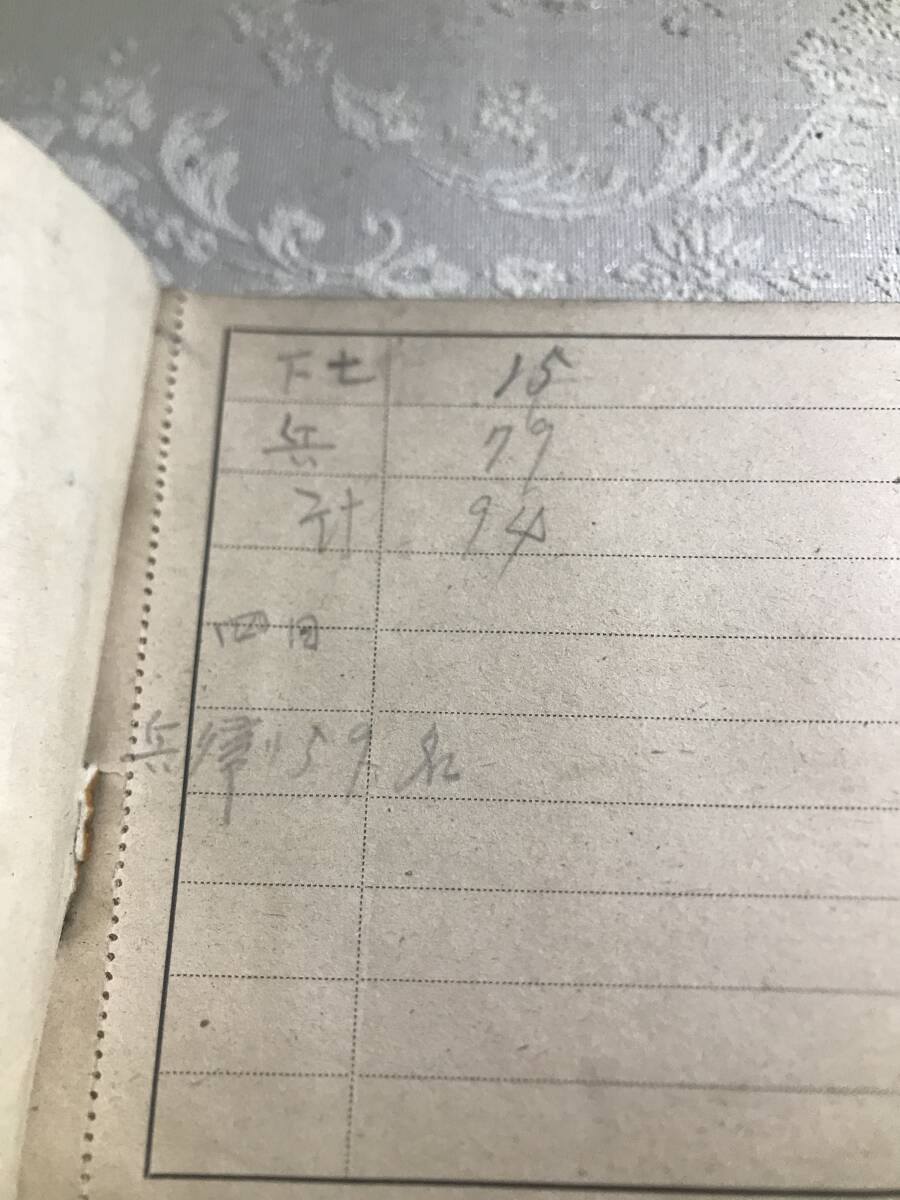 下士 15
兵 79
計 94
四日
兵 59名